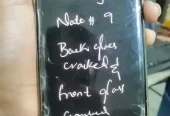 Note # 9
Back glass
cracked &
Front glass